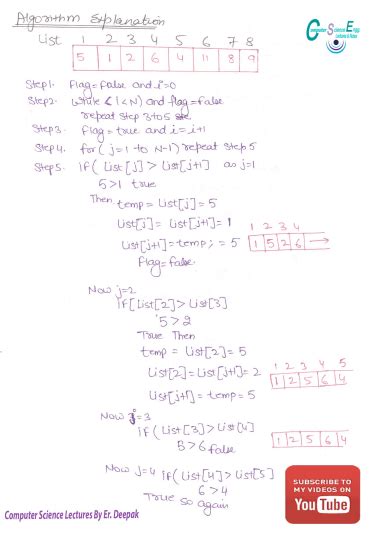 Algorithm Explanation
Computer Science Engg
Lectures & Notes
List 1 2 3 4 5 6 7 8
5 1 2 6 4 11 8 9
Step1. Flag=False and i=0
Step2. While (i<N) and flag=false
repeat step 3 to 5
Step3. flag=true and i=i+1
Step4. for(j=1 to N-1) repeat step 5
Step5. if( List[j] > List[j+1] as j=1
5>1 true
Then temp=List[j]=5
List[j]= List[j+1]=1
List[j+1]=temp; = 5
Flag=false.
1 2 3 4
1 5 2 6 →
Now j=2
if[List[2]>List[3]
5>2
True Then
temp = List[2]=5
List[2]=List[j+1]=2
List[j+1]=temp=5
1 2 3 4 5
1 2 5 6 4
Now j=3
if(List[3]>List[4]
5>6 false
1 2 5 6 4
Now j=4 if(List[4]>List[5]
6>4
True so again
SUBSCRIBE TO
MY VIDEOS ON
YouTube
Computer Science Lectures By Er. Deepak